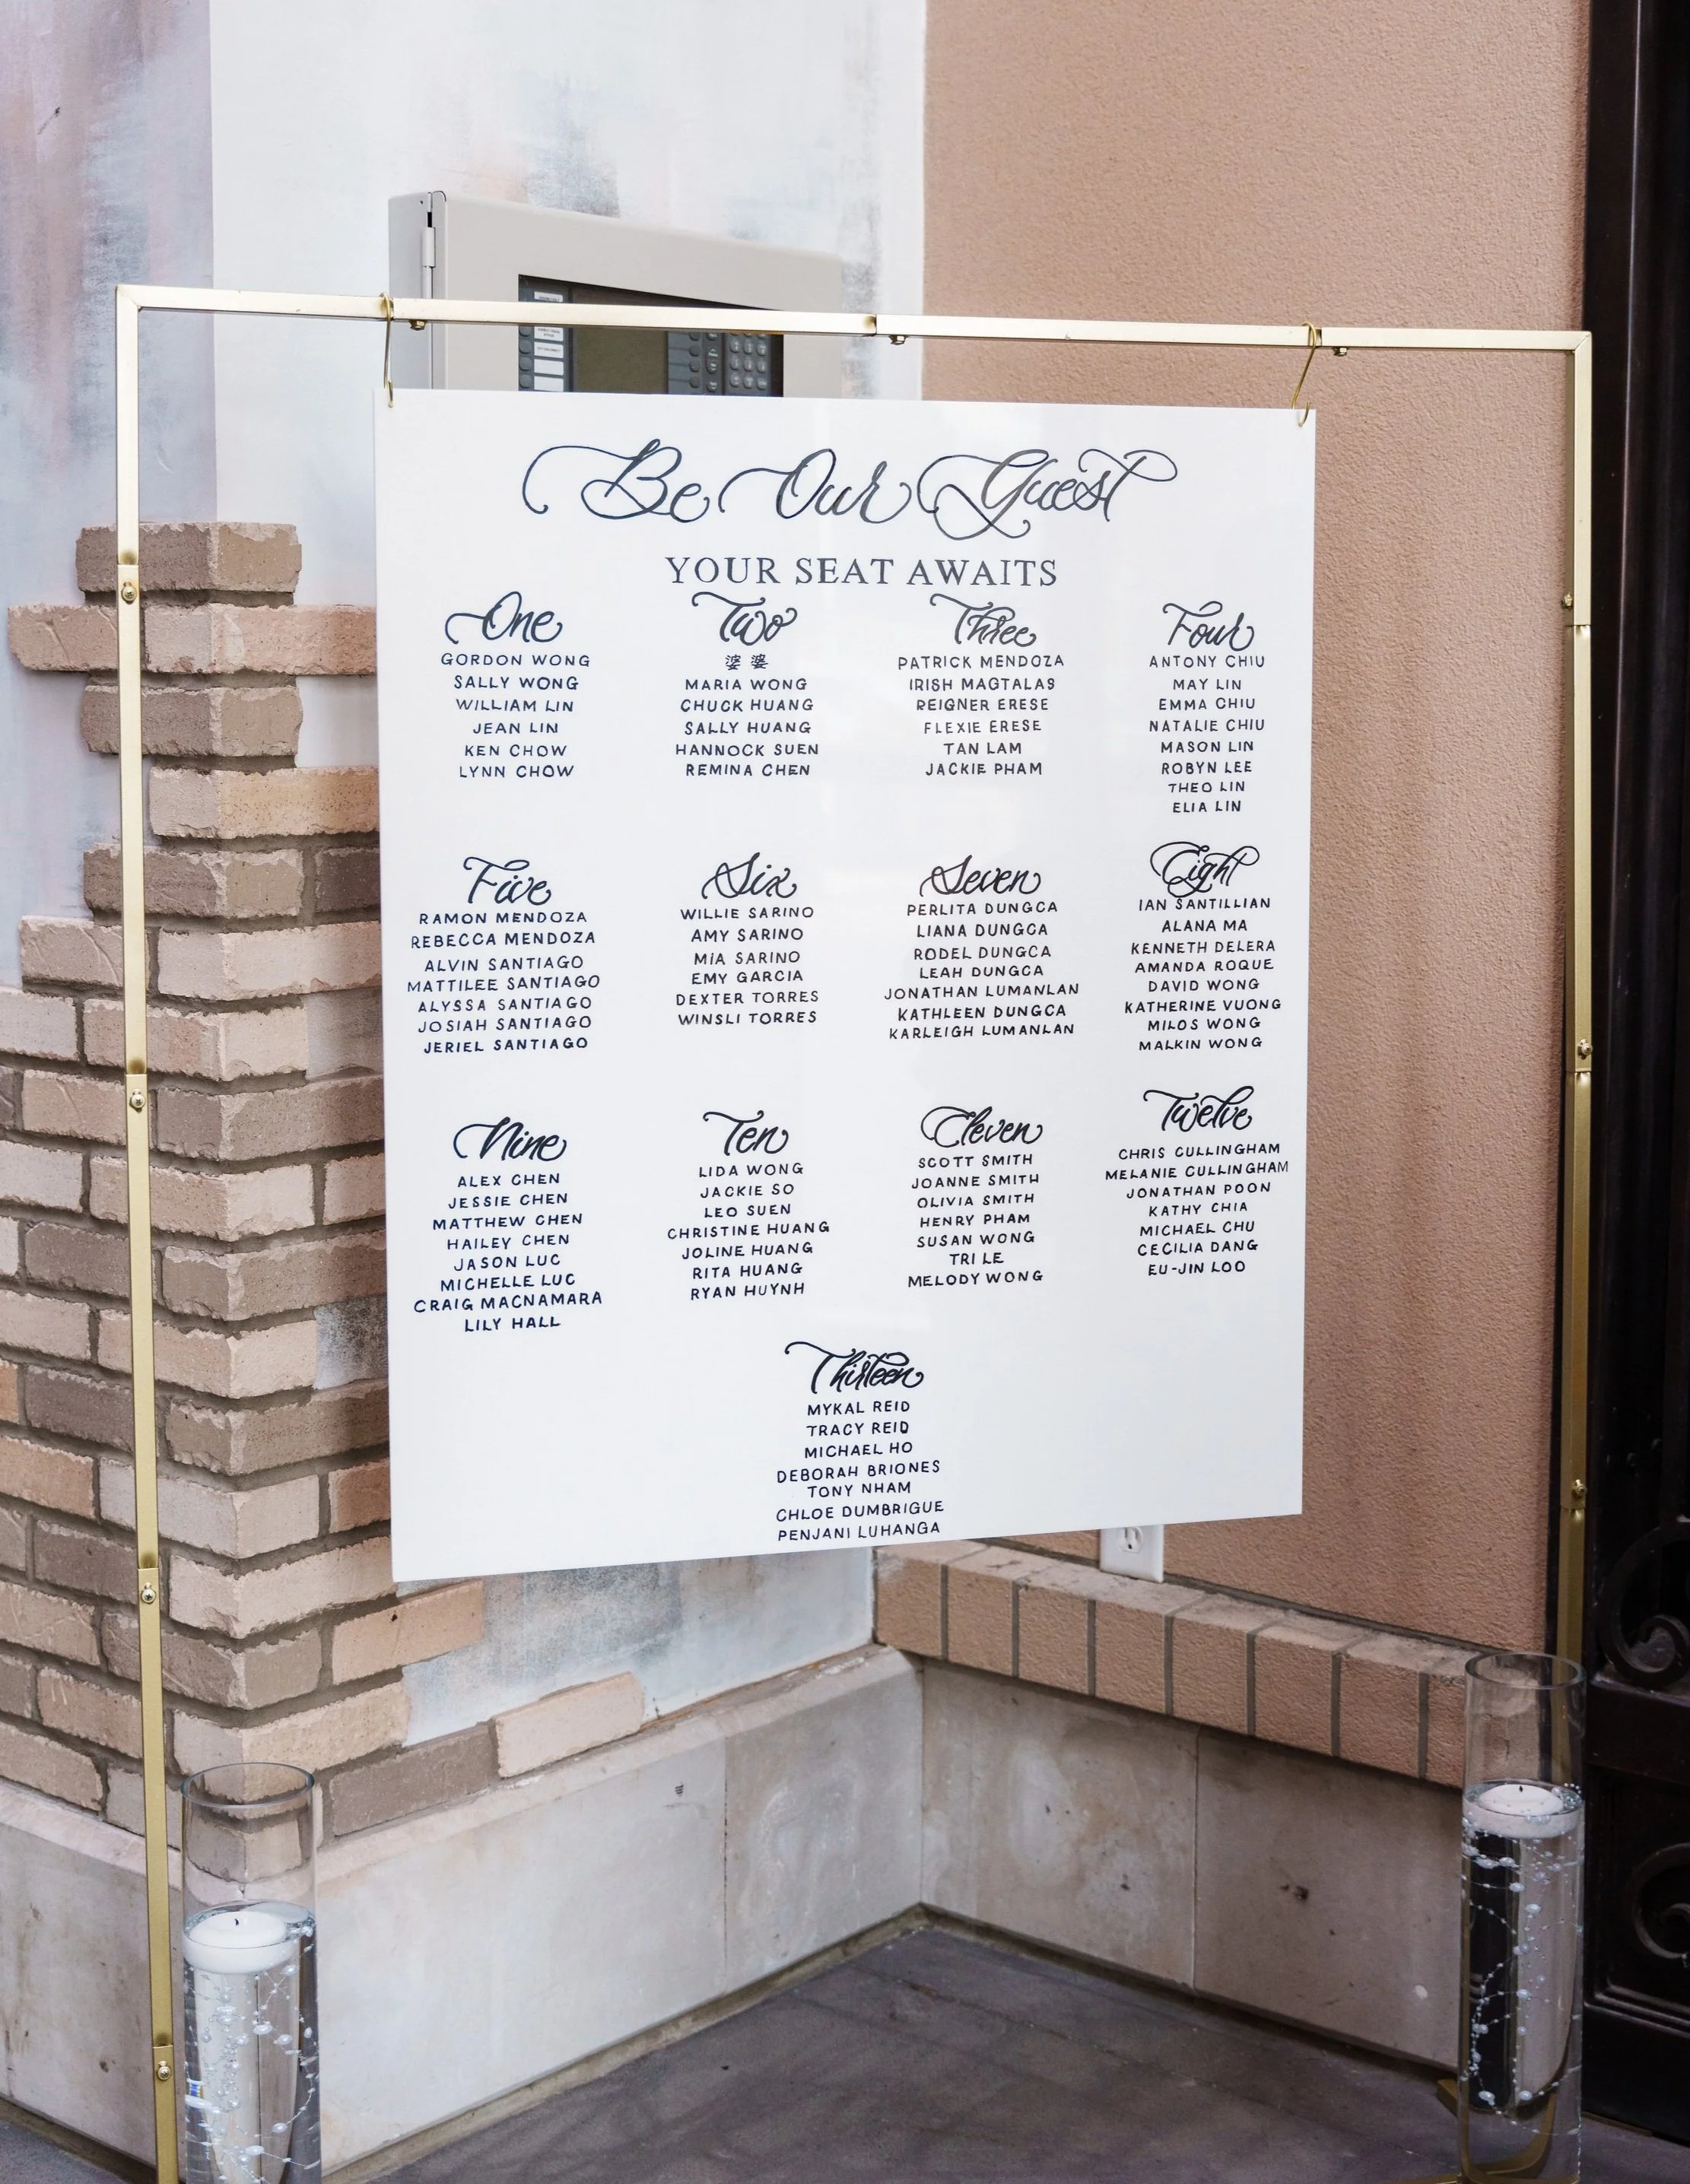 Be Our Guest
YOUR SEAT AWAITS
One
GORDON WONG
SALLY WONG
WILLIAM LIN
JEAN LIN
KEN CHOW
LYNN CHOW
Two
婆婆
MARIA WONG
CHUCK HUANG
SALLY HUANG
HANNOCK SUEN
REMINA CHEN
Three
PATRICK MENDOZA
IRISH MAGTALAS
REIGNER ERESE
FLEXIE ERESE
TAN LAM
JACKIE PHAM
Four
ANTONY CHIU
MAY LIN
EMMA CHIU
NATALIE CHIU
MASON LIN
ROBYN LEE
THEO LIN
ELIA LIN
Five
RAMON MENDOZA
REBECCA MENDOZA
ALVIN SANTIAGO
MATTILEE SANTIAGO
ALYSSA SANTIAGO
JOSIAH SANTIAGO
JERIEL SANTIAGO
Six
WILLIE SARINO
AMY SARINO
MIA SARINO
EMY GARCIA
DEXTER TORRES
WINSLI TORRES
Seven
PERLITA DUNGCA
LIANA DUNGCA
RODEL DUNGCA
LEAH DUNGCA
JONATHAN LUMANLAN
KATHLEEN DUNGCA
KARLEIGH LUMANLAN
Eight
IAN SANTILLIAN
ALANA MA
KENNETH DELERA
AMANDA ROQUE
DAVID WONG
KATHERINE VUONG
MILOS WONG
MALKIN WONG
Nine
ALEX CHEN
JESSIE CHEN
MATTHEW CHEN
HAILEY CHEN
JASON LUC
MICHELLE LUC
CRAIG MACNAMARA
LILY HALL
Ten
LIDA WONG
JACKIE SO
LEO SUEN
CHRISTINE HUANG
JOLINE HUANG
RITA HUANG
RYAN HUYNH
Eleven
SCOTT SMITH
JOANNE SMITH
OLIVIA SMITH
HENRY PHAM
SUSAN WONG
TRI LE
MELODY WONG
Twelve
CHRIS CULLINGHAM
MELANIE CULLINGHAM
JONATHAN POON
KATHY CHIA
MICHAEL CHU
CECILIA DANG
EU-JIN LOO
Thirteen
MYKAL REID
TRACY REID
MICHAEL HO
DEBORAH BRIONES
TONY NHAM
CHLOE DUMBRIGUE
PENJANI LUHANGA